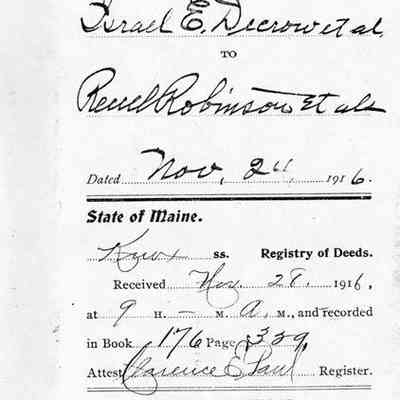 Israel E. Decrow et al.
TO
Reuel Robinson et als
Dated Nov. 24, 1916.
State of Maine.
Knox ss. Registry of Deeds.
Received Nov. 28, 1916,
at 9 H. — M. A. M., and recorded
in Book 176 Page 339,
Attest Clarence E. Paul Register.